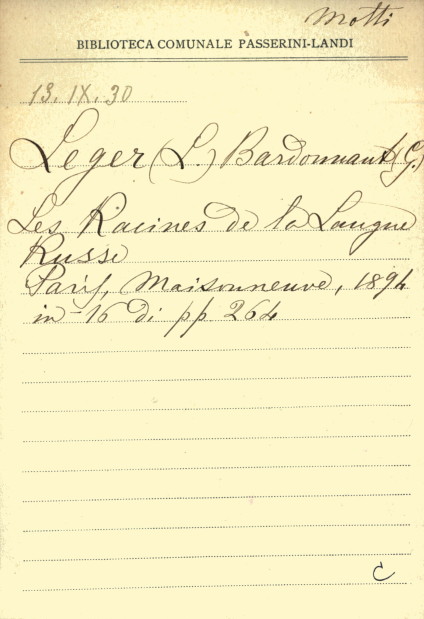 Motti
BIBLIOTECA COMUNALE PASSERINI-LANDI
13. IX. 30
Leger (L.) Bardonnaut (G.)
Les Racines de la Langue
Russe
Paris, Maisonneuve, 1894
in-16 di pp 264
C